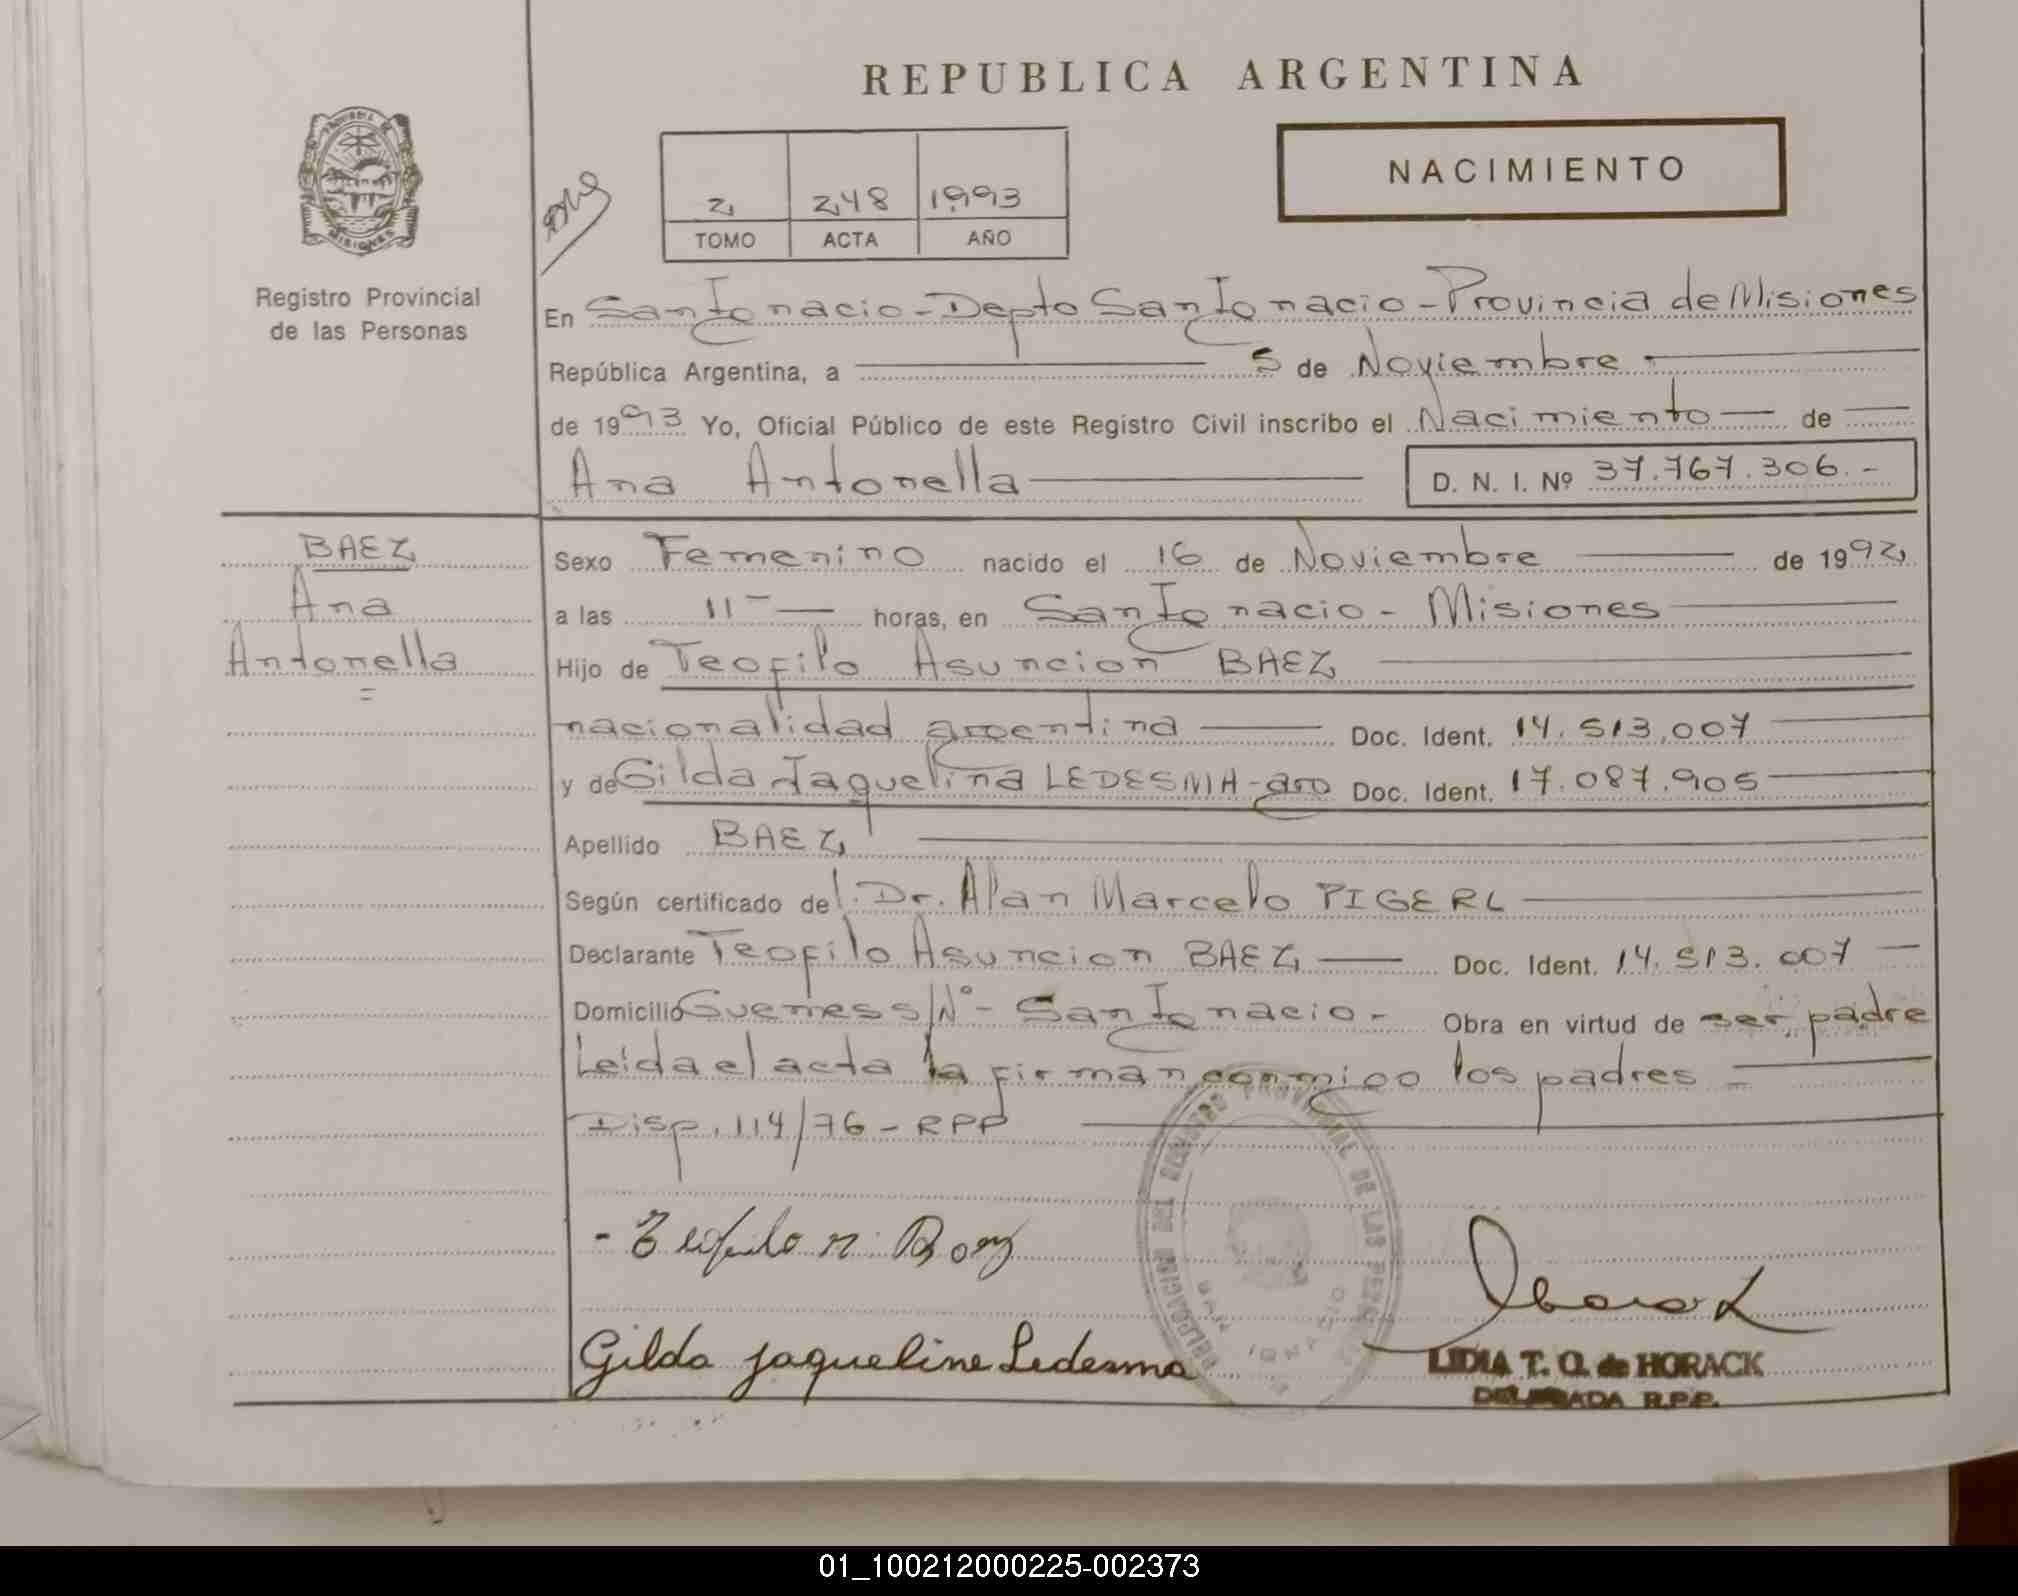 REPUBLICA ARGENTINA
NACIMIENTO
2 248 1993
TOMO ACTA AÑO
MISIONES
Registro Provincial
de las Personas
En San Ignacio - Depto San Ignacio - Provincia de Misiones
República Argentina, a 5 de Noviembre
de 1993 Yo, Oficial Público de este Registro Civil inscribo el Nacimiento de
Ana Antonella D. N. I. Nº 37.767.306.-
BAEZ
Ana
Antonella
=
Sexo Femenino nacido el 16 de Noviembre de 1992
a las 11 horas, en San Ignacio - Misiones
Hijo de Teofilo Asuncion BAEZ
nacionalidad argentina Doc. Ident. 14.513.007
y de Gilda Jaquelina LEDESMA - arg Doc. Ident. 17.087.905
Apellido BAEZ
Según certificado del. Dr. Alan Marcelo PIGERL
Declarante Teofilo Asuncion BAEZ Doc. Ident. 14.513.007
Domicilio Guemes S/Nº - San Ignacio - Obra en virtud de ser padre
Leida el acta la firman conmigo los padres =
Disp. 114/76 - RPP
DELEGACION DEL REGISTRO PROVINCIAL DE LAS PERSONAS
SAN IGNACIO
Gilda Jaqueline Ledesma
LIDIA T. O. de HORACK
DELEGADA R.P.P.
01_100212000225-002373